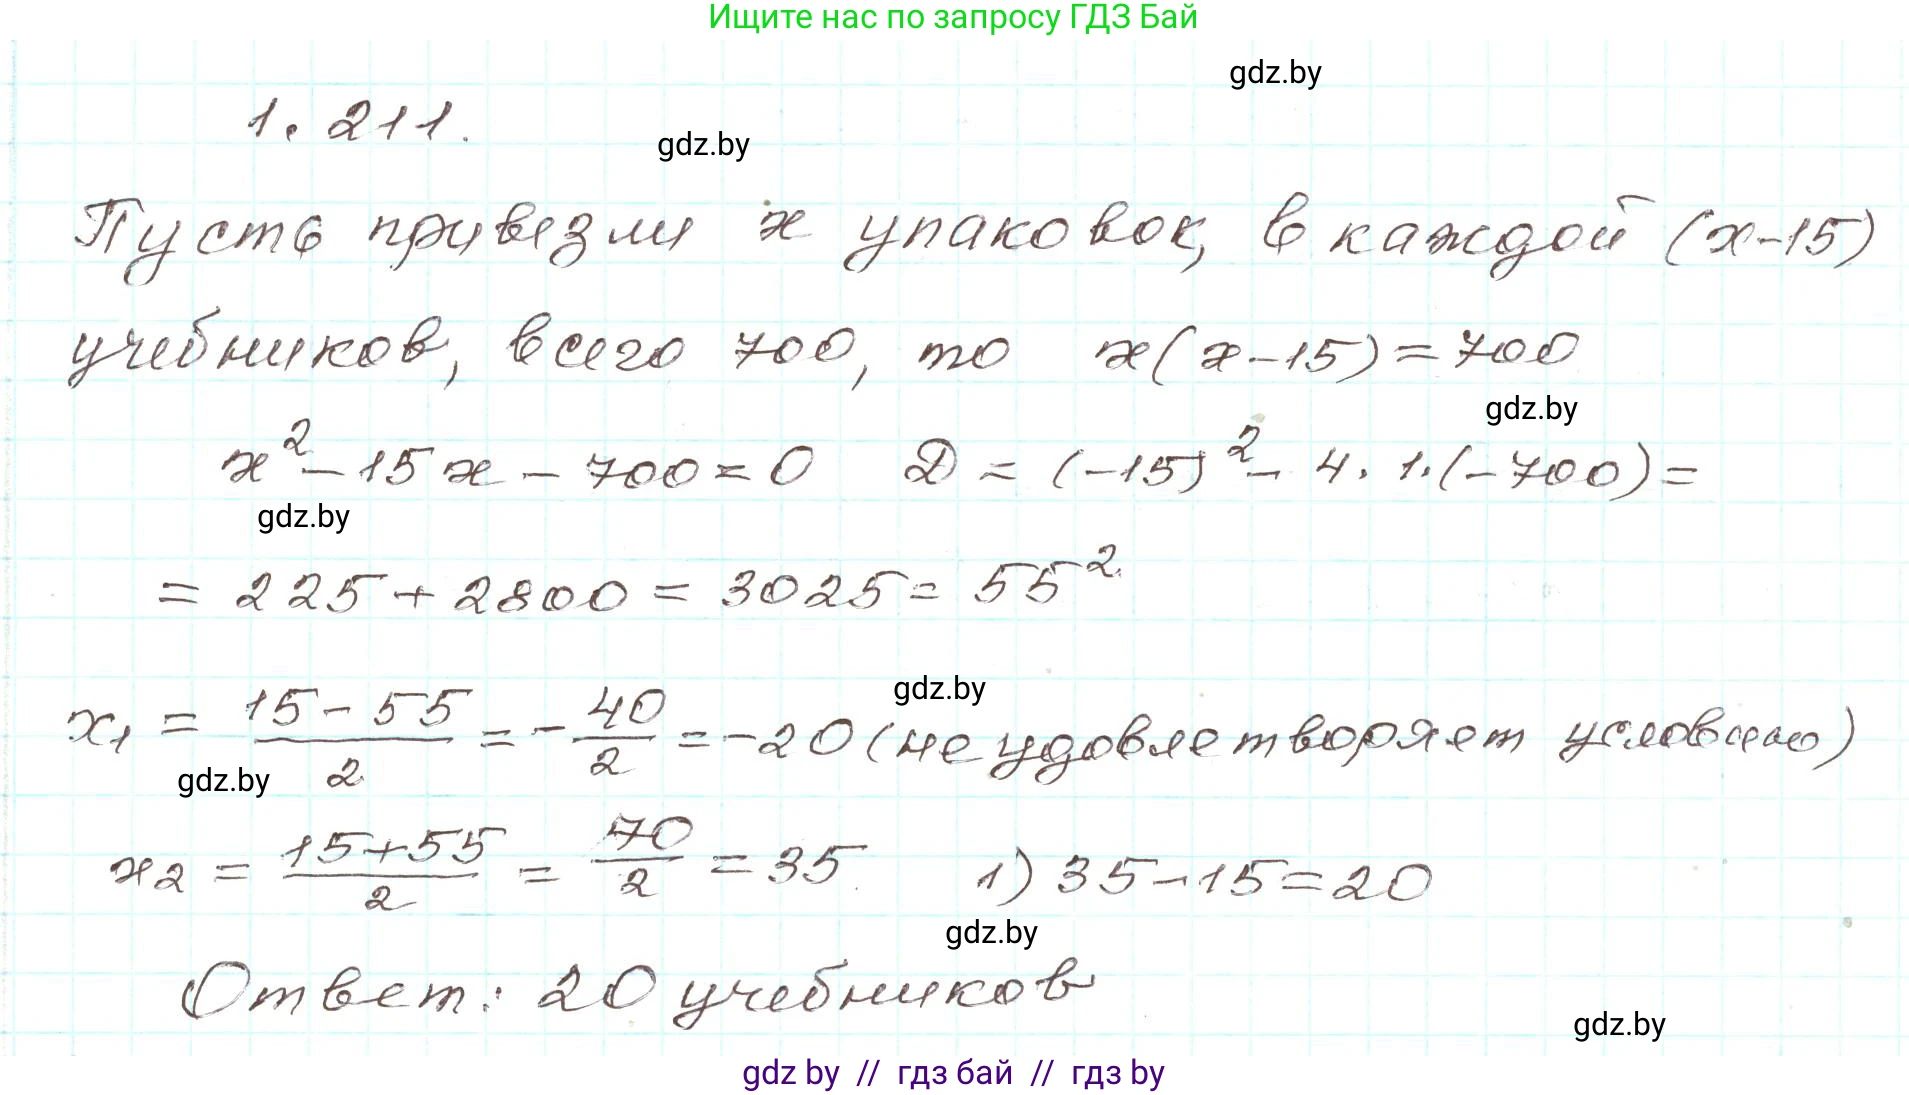 Ищите нас по запросу ГДЗ Бай
gdz.by
1.211.
gdz.by
Пусть привезли x упаковок, в каждой (x-15)
учебников, всего 700, то x(x-15)=700
gdz.by
x²-15x-700=0 D=(-15)²-4.1.(-700)=
gdz.by
=225+2800=3025=55²
gdz.by
x₁ = \frac{15-55}{2} = -\frac{40}{2} = -20 (не удовлетворяет условию)
gdz.by
x₂ = \frac{15+55}{2} = \frac{70}{2} = 35 1) 35-15=20
gdz.by
Ответ: 20 учебников
gdz.by
gdz by // гдз бай // гдз by